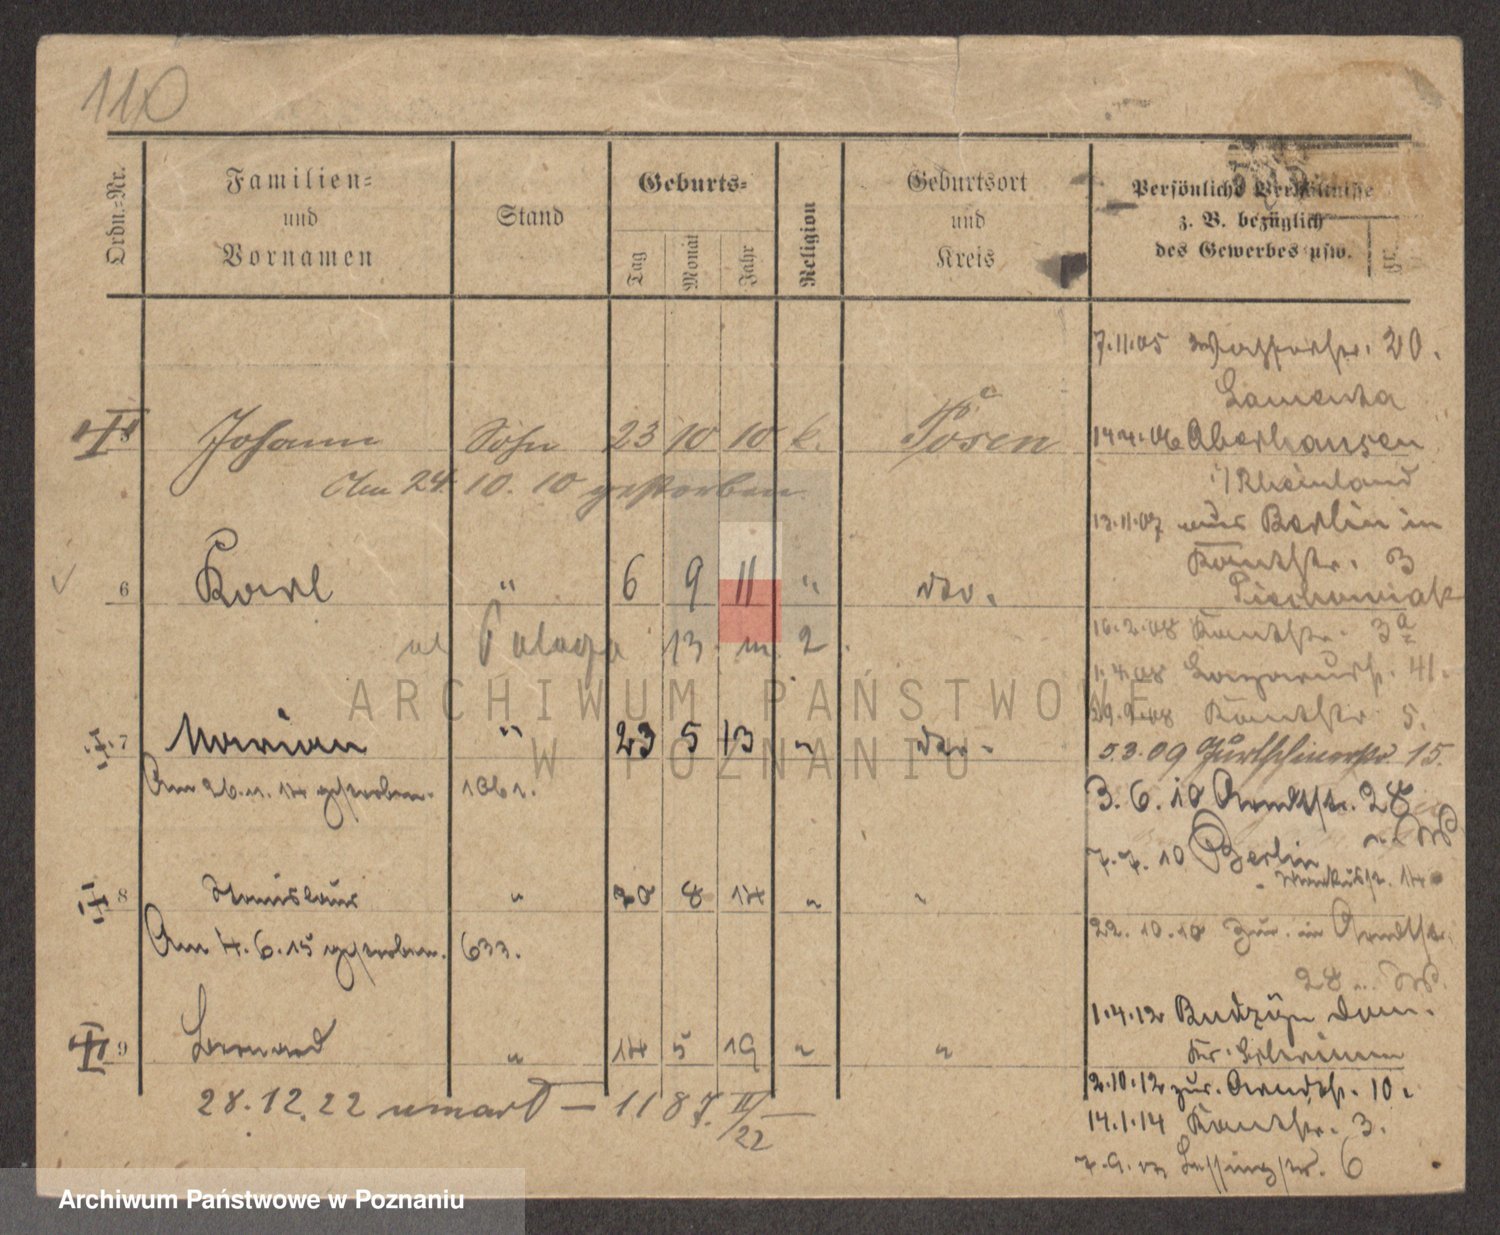 110
Ordn.=Nr.
Familien=
und
Vornamen
Stand
Geburts=
Tag
Monat
Jahr
Religion
Geburtsort
und
Kreis
Persönliche Verhältnisse
z. B. bezüglich
des Gewerbes usw.
5 Johann Sohn 23 10 10 k. Posen
Am 24. 10. 10 gestorben
6 Karl " 6 9 11 " do.
ul 13 m 2
7 Marian " 23 5 13 " do.
Am 26.11.14 gestorben. 1061.
8 Stanislaus " 20 8 14 " "
Am 4.6.15 gestorben. 633.
9 Bernard " 14 5 19 " "
28.12.22 umarł — 1187. II/22 —
7.11.05 Wasserstr. 20.
14.4.06 Oberhausen
i/Rheinland
13.11.07 aus Berlin in
Kantstr. 3
Piechowiak
10.2.08 Kantstr. 3a
1.4.08 41.
29.9.08 Kantstr 5.
5.3.09 15.
3.6.10 Arndtstr. 28
7.7.10 Berlin
22.10.10 zur. in Arndtstr.
28
1.4.12 Budzyn Dom.
2.10.12 zur. Arndtstr. 10.
14.1.14 Kantstr. 3.
Lessingstr. 6
ARCHIWUM PAŃSTWOWE
W POZNANIU
Archiwum Państwowe w Poznaniu